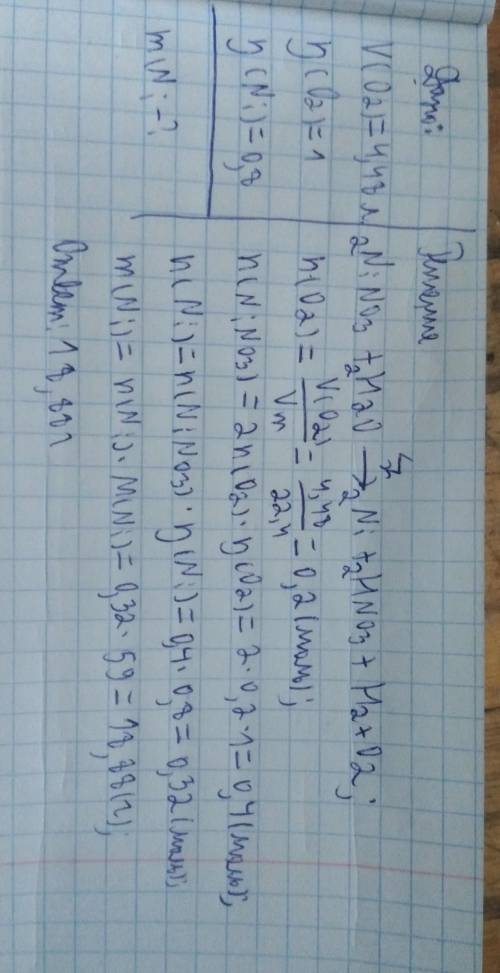 Дано:
V(O2)=4,48 л
η(O2)=1
η(Ni)=0,8
m(Ni-?
Решение
2NiNO3 + 2H2O → 2Ni + 2HNO3 + H2 + O2;
n(O2) = V(O2) / Vm = 4,48 / 22,4 = 0,2 (моль);
n(NiNO3) = 2n(O2)·η(O2) = 2·0,2·1 = 0,4 (моль);
n(Ni) = n(NiNO3)·η(Ni) = 0,4·0,8 = 0,32 (моль);
m(Ni) = n(Ni)·M(Ni) = 0,32·59 = 18,88 (г);
Ответ: 18,88г